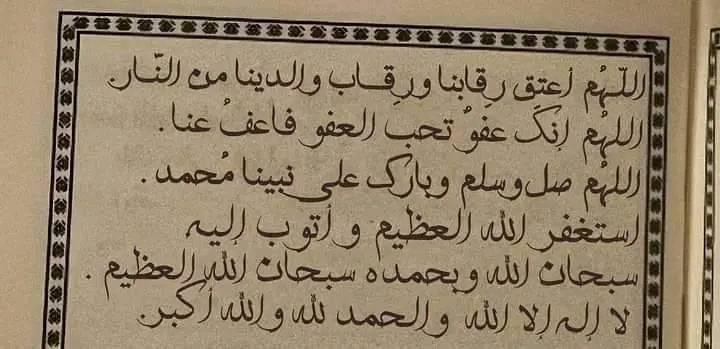 اللّهُم أعتق رِقابنا ورِقاب والدينا من النّار.
اللهُم إنكَ عفوٌ تحب العفو فاعفُ عنا.
اللهُم صل وسلم وبارك على نبينا مُحمد.
استغفر الله العظيم و أتوب إليه
سبحان الله وبحمده سبحان الله العظيم.
لا إله إلا الله والحمد لله والله أكبر.